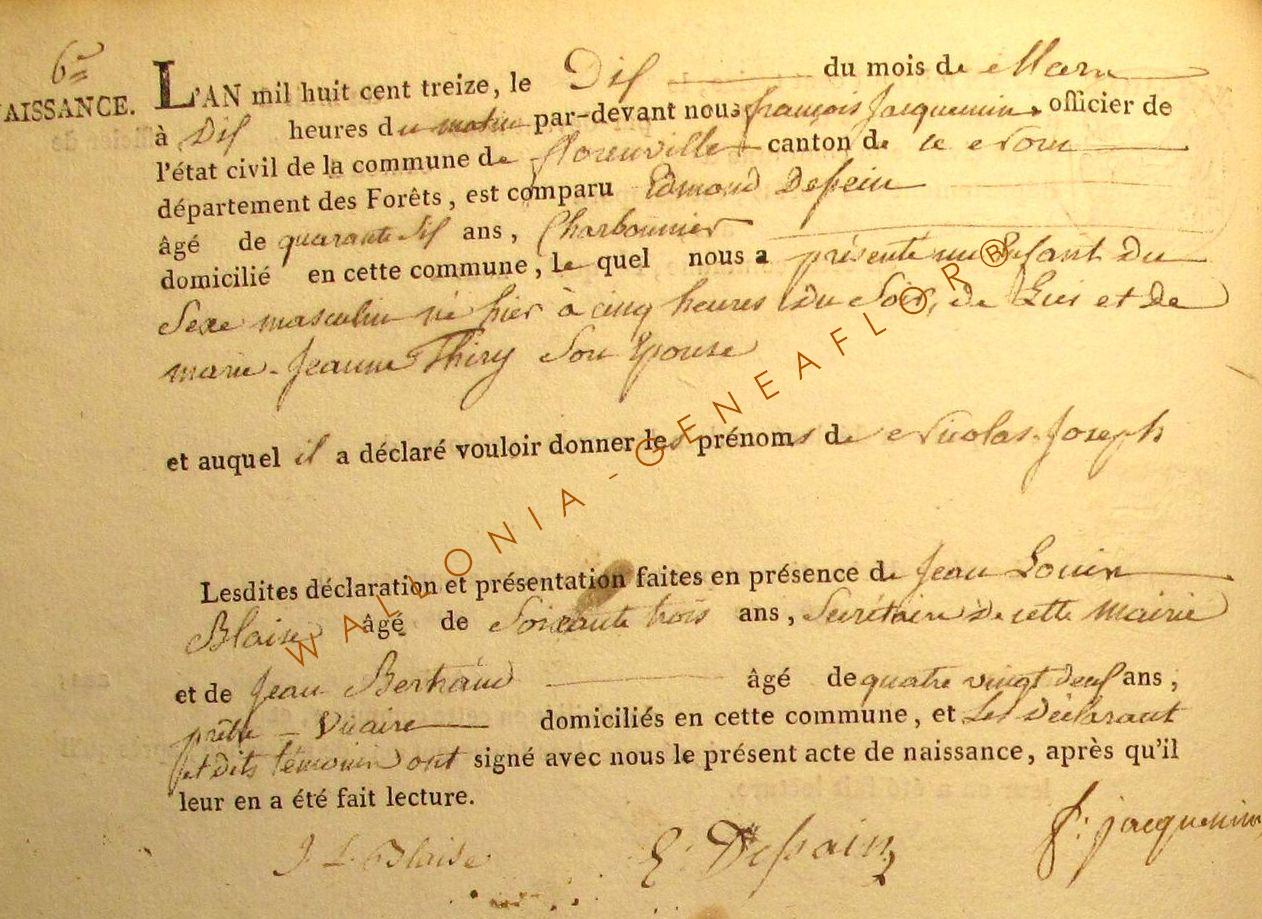 6e
NAISSANCE.
L'AN mil huit cent treize, le Dix du mois de Mars
à Dix heures du matin par-devant nous françois Jacquemin, officier de
l'état civil de la commune de florenville canton de ce Nom
département des Forêts, est comparu Edmond Dessein
âgé de quarante six ans, Charbonnier
domicilié en cette commune, le quel nous a présenté un Enfant Du
Sexe masculin né hier à cinq heures Du Soir, de Lui et De
marie-Jeanne Thiry Son Epouse
et auquel il a déclaré vouloir donner les prénoms de Nicolas-Joseph
Lesdites déclaration et présentation faites en présence de Jean Louis
Blaise âgé de Soixante trois ans, Secrétaire De cette mairie
et de Jean Bertrand âgé de quatre vingt deux ans,
prêtre - Vicaire domiciliés en cette commune, et Les Déclarant
et dits témoins ont signé avec nous le présent acte de naissance, après qu'il
leur en a été fait lecture.
J L Blaise E. Dessain f: jacquemin
WALLONIA-GENEAFLOR®